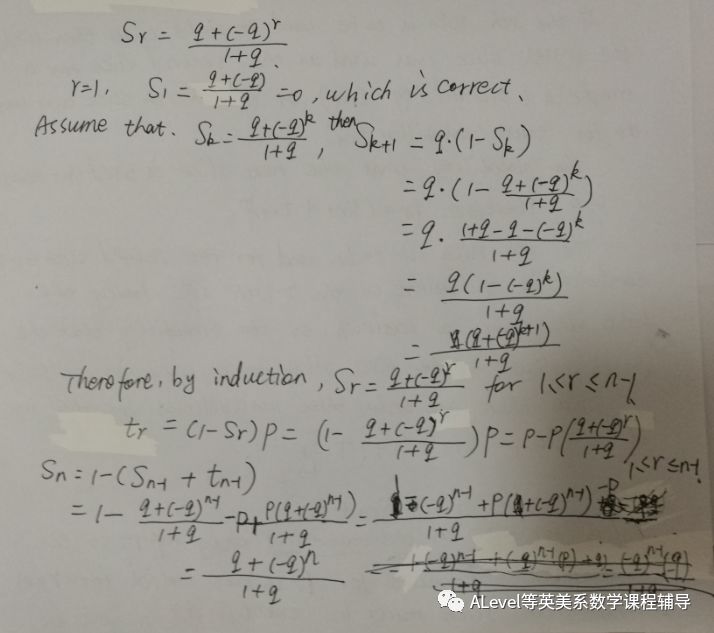 Sr = (q+(-q)^r)/(1+q).
r=1, S1 = (q+(-q))/(1+q) =0, which is correct.
Assume that. Sk = (q+(-q)^k)/(1+q), then Sk+1 = q·(1-Sk)
= q·(1- (q+(-q)^k)/(1+q))
= q· (1+q-q-(-q)^k)/(1+q)
= q(1-(-q)^k)/(1+q)
= (q+(-q)^(k+1))/(1+q)
Therefore, by induction, Sr = (q+(-q)^r)/(1+q) for 1≤r≤n-1
tr = (1-Sr)p = (1- (q+(-q)^r)/(1+q))p = p-p((q+(-q)^r)/(1+q)) 1≤r≤n-1
Sn = 1-(Sn-1 + tn-1)
= 1- (q+(-q)^(n-1))/(1+q) -p+ p(q+(-q)^(n-1))/(1+q) = (1-(-q)^(n-1)+p(q+(-q)^(n-1))-p)/(1+q)
= (q+(-q)^n)/(1+q)
ALevel等英美系数学课程辅导